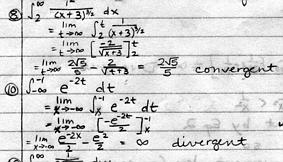 ⑧ ∫₂^∞ 1/(x+3)^(3/2) dx
= lim t→∞ ∫₂^t 1/(x+3)^(3/2) dx
= lim t→∞ [-2/√(x+3)]₂^t
= lim t→∞ 2√5/5 - 2/√(t+3) = 2√5/5 convergent
⑩ ∫_-∞^-1 e^(-2t) dt
= lim x→-∞ ∫_x^-1 e^(-2t) dt
= lim x→-∞ [-e^(-2t)/2]_x^-1
= lim x→-∞ e^(-2x)/2 - e²/2 = ∞ divergent